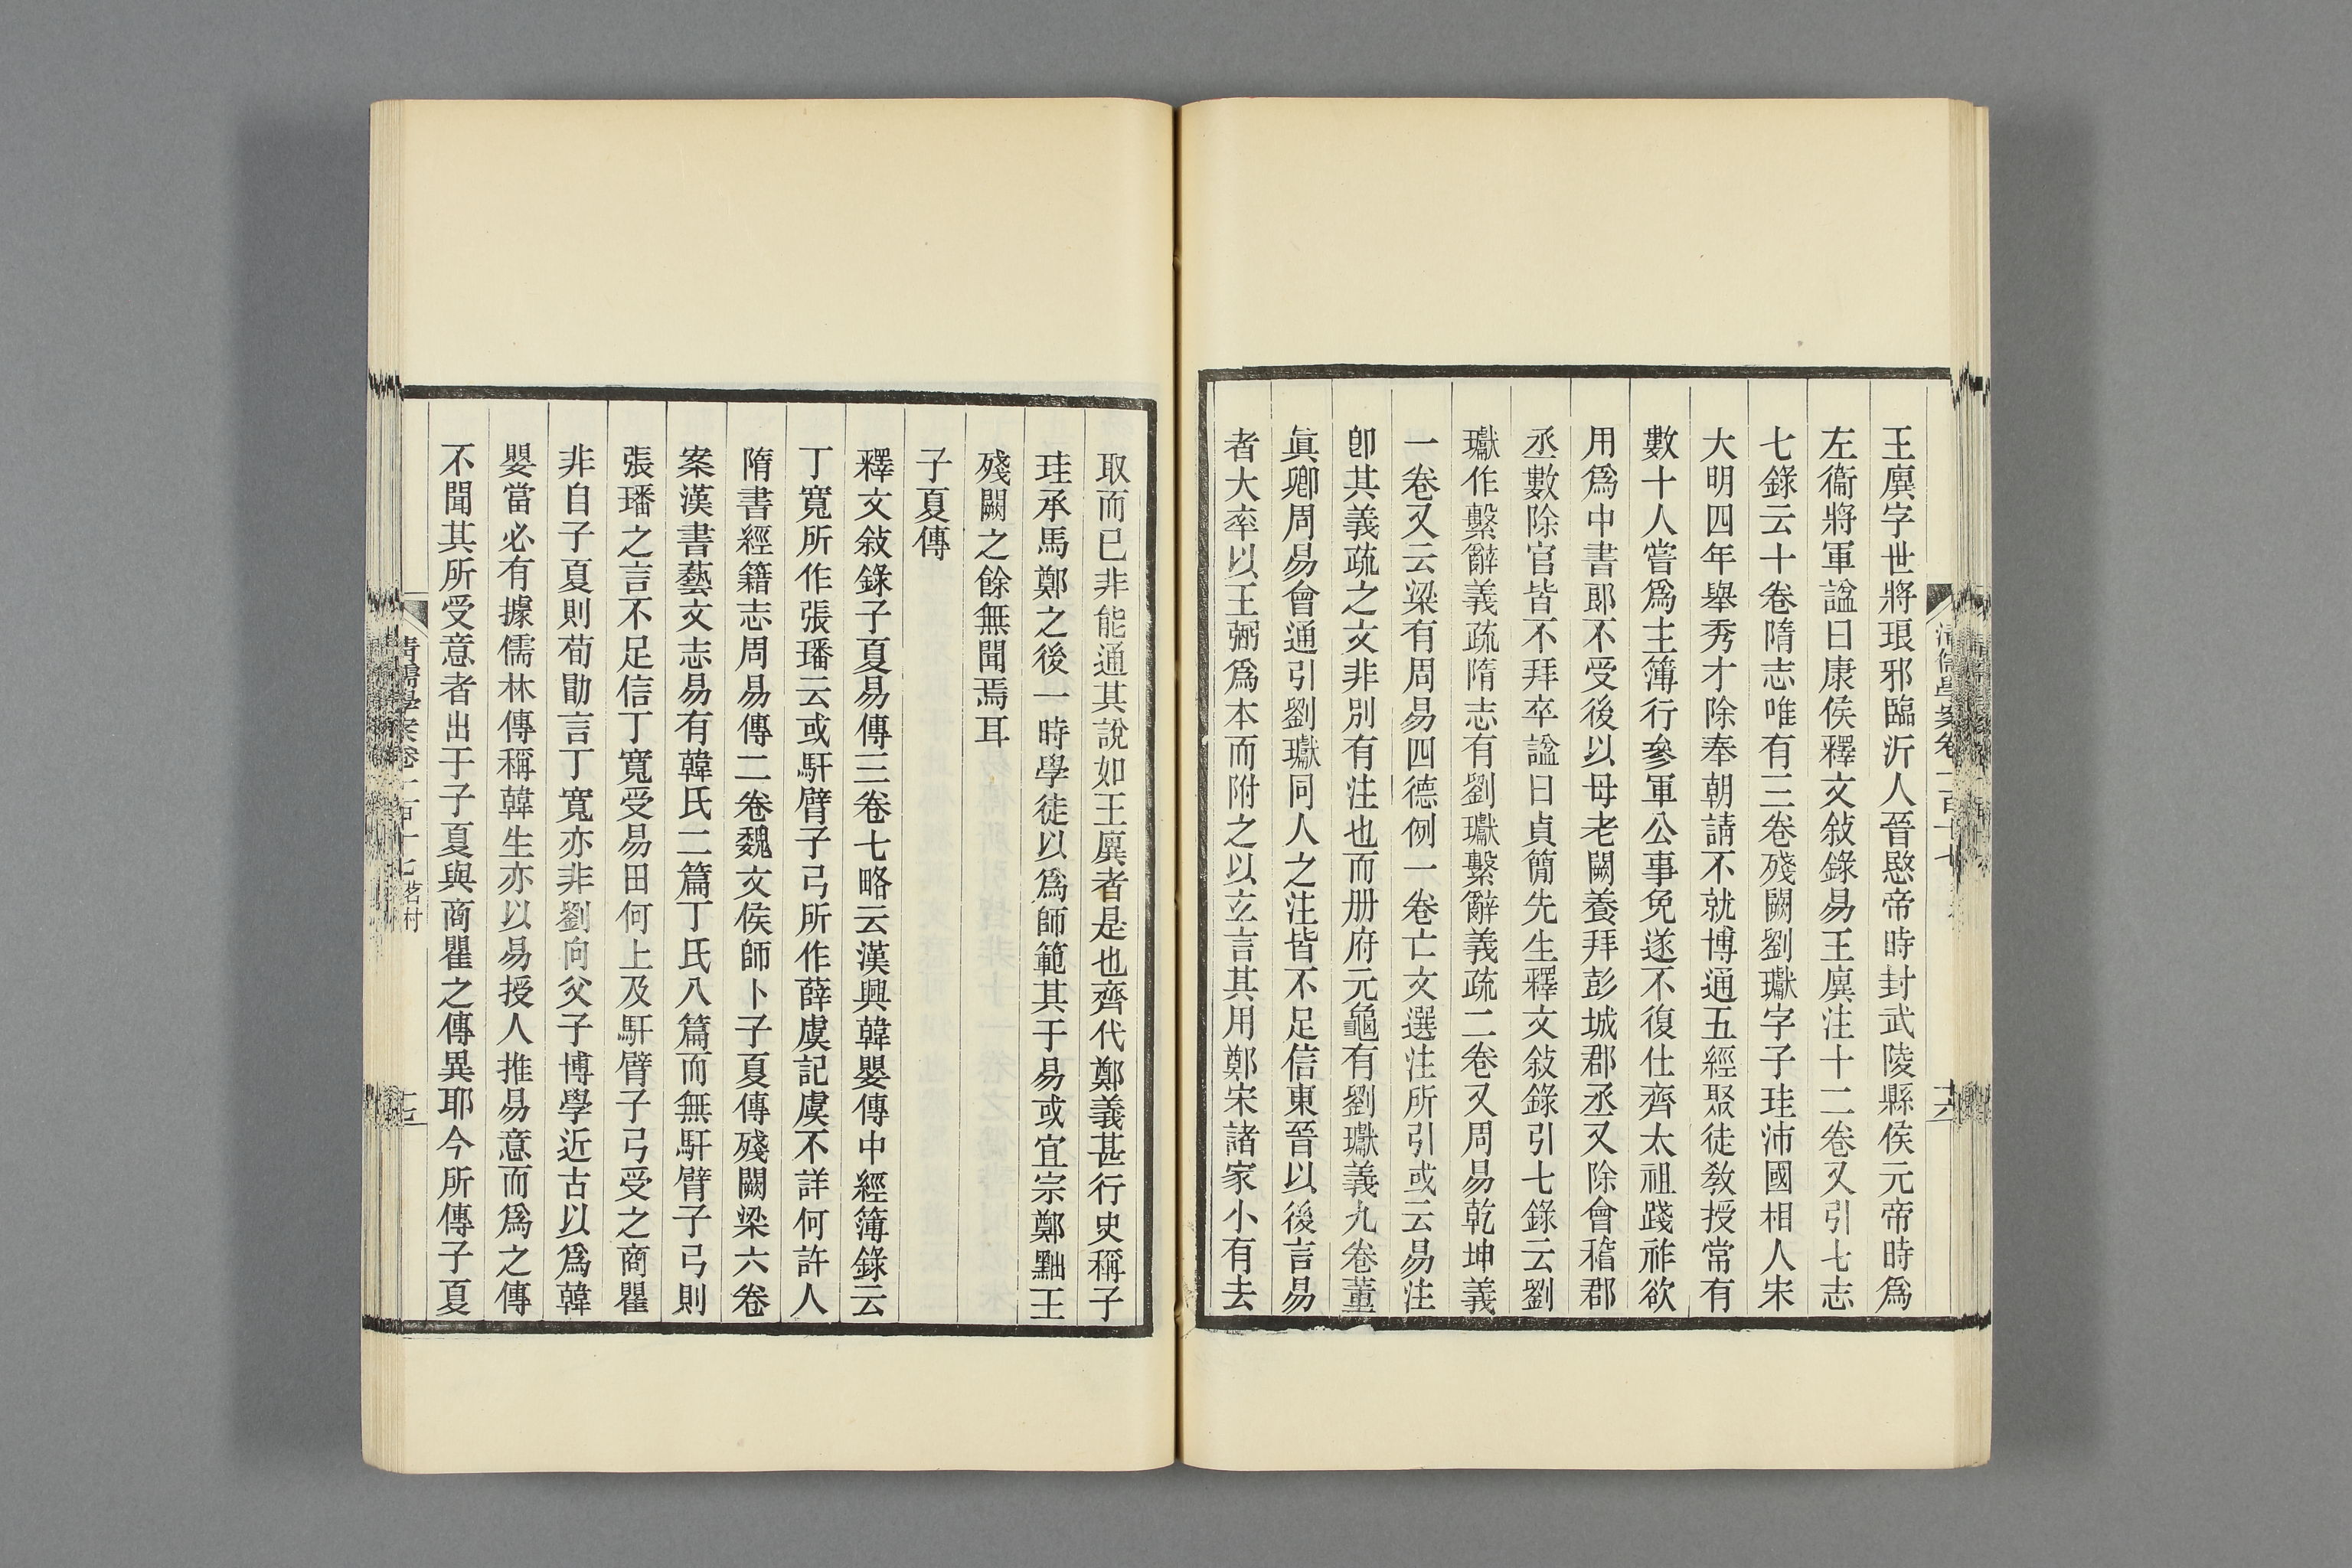 王廙字世將琅邪臨沂人晉愍帝時封武陵縣侯元帝時爲
左衞將軍諡曰康侯釋文敍錄易王廙注十二卷又引七志
七錄云十卷隋志唯有三卷殘闕劉瓛字子珪沛國相人宋
大明四年舉秀才除奉朝請不就博通五經聚徒敎授常有
數十人嘗爲主簿行參軍公事免遂不復仕齊太祖踐祚欲
用爲中書郎不受後以母老闕養拜彭城郡丞又除會稽郡
丞數除官皆不拜卒諡曰貞簡先生釋文敍錄引七錄云劉
瓛作繫辭義疏隋志有劉瓛繫辭義疏二卷又周易乾坤義
一卷又云梁有周易四德例一卷亡文選注所引或云易注
卽其義疏之文非別有注也而册府元龜有劉瓛義九卷董
眞卿周易會通引劉瓛同人之注皆不足信東晉以後言易
者大率以王弼爲本而附之以玄言其用鄭宋諸家小有去
取而已非能通其說如王廙者是也齊代鄭義甚行史稱子
珪承馬鄭之後一時學徒以爲師範其于易或宜宗鄭黜王
殘闕之餘無聞焉耳
子夏傳
釋文敍錄子夏易傳三卷七略云漢興韓嬰傳中經簿錄云
丁寬所作張璠云或馯臂子弓所作薛虞記虞不詳何許人
隋書經籍志周易傳二卷魏文侯師卜子夏傳殘闕梁六卷
案漢書藝文志易有韓氏二篇丁氏八篇而無馯臂子弓則
張璠之言不足信丁寬受易田何上及馯臂子弓受之商瞿
非自子夏則荀勖言丁寬亦非劉向父子博學近古以爲韓
嬰當必有據儒林傳稱韓生亦以易授人推易意而爲之傳
不聞其所受意者出于子夏與商瞿之傳異耶今所傳子夏
清儒學案卷一百十七 茗村